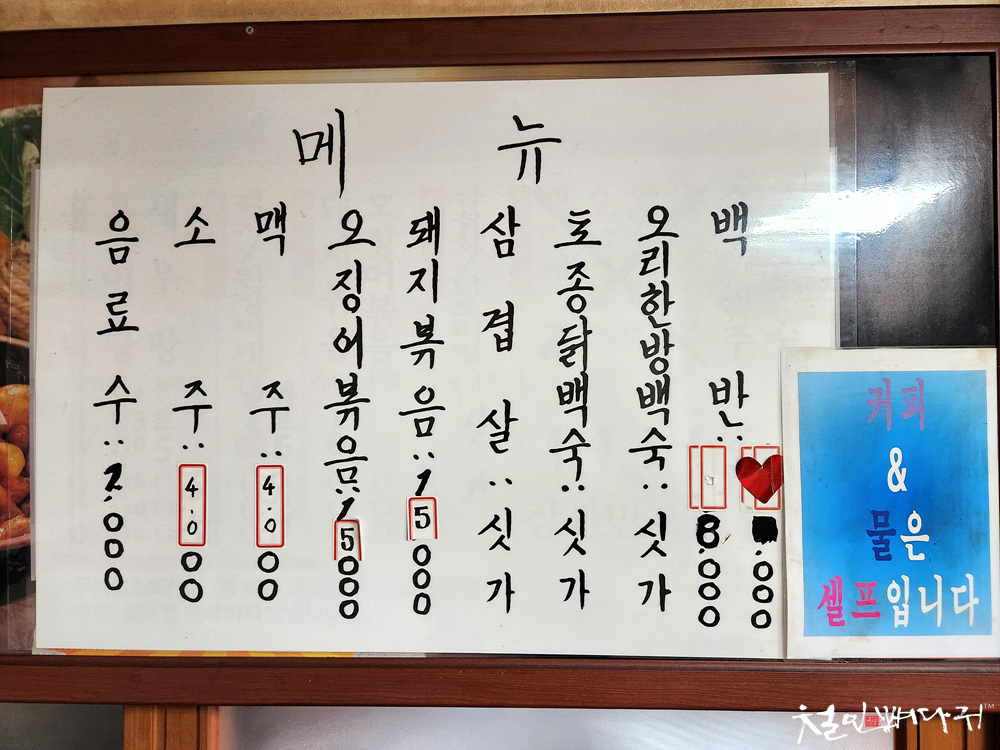 메뉴
백반: 8.000 .000
오리한방백숙: 싯가
토종닭백숙: 싯가
삼겹살: 싯가
돼지볶음: 15000
오징어볶음: 15000
맥주: 4.000
소주: 4.000
음료수: 2.000
커피
&
물은
셀프입니다
철민뼈다귀™